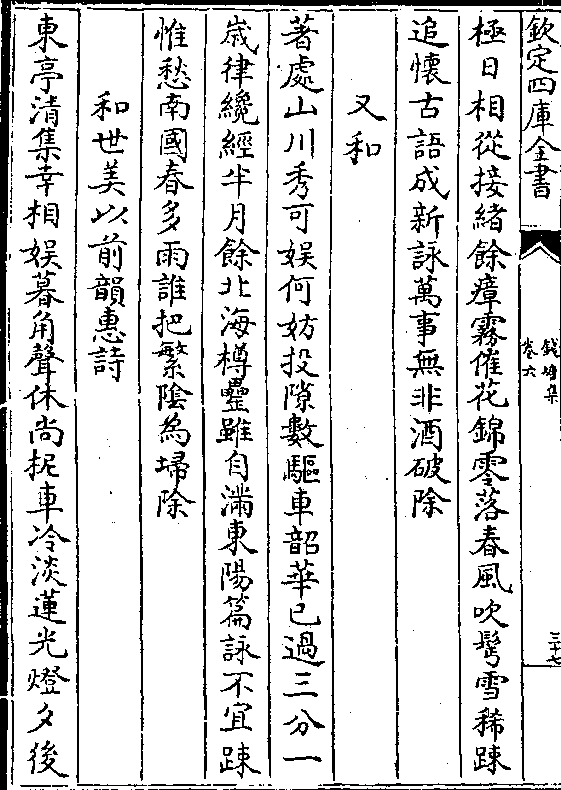 欽定四庫全書
錢塘集
卷六
三十七
極日相從接緒餘瘴霧催花錦零落春風吹髩雪稀踈
追懷古語成新詠萬事無非酒破除
又和
著處山川秀可娱何妨投隙數驅車韶華已過三分一
嵗律纔經半月餘北海樽罍雖自滿東陽篇詠不宜踈
惟愁南國春多雨誰把繁陰為埽除
和世美以前韻惠詩
東亭清集幸相娱暮角聲休尚柅車冷淡蓮光燈夕後